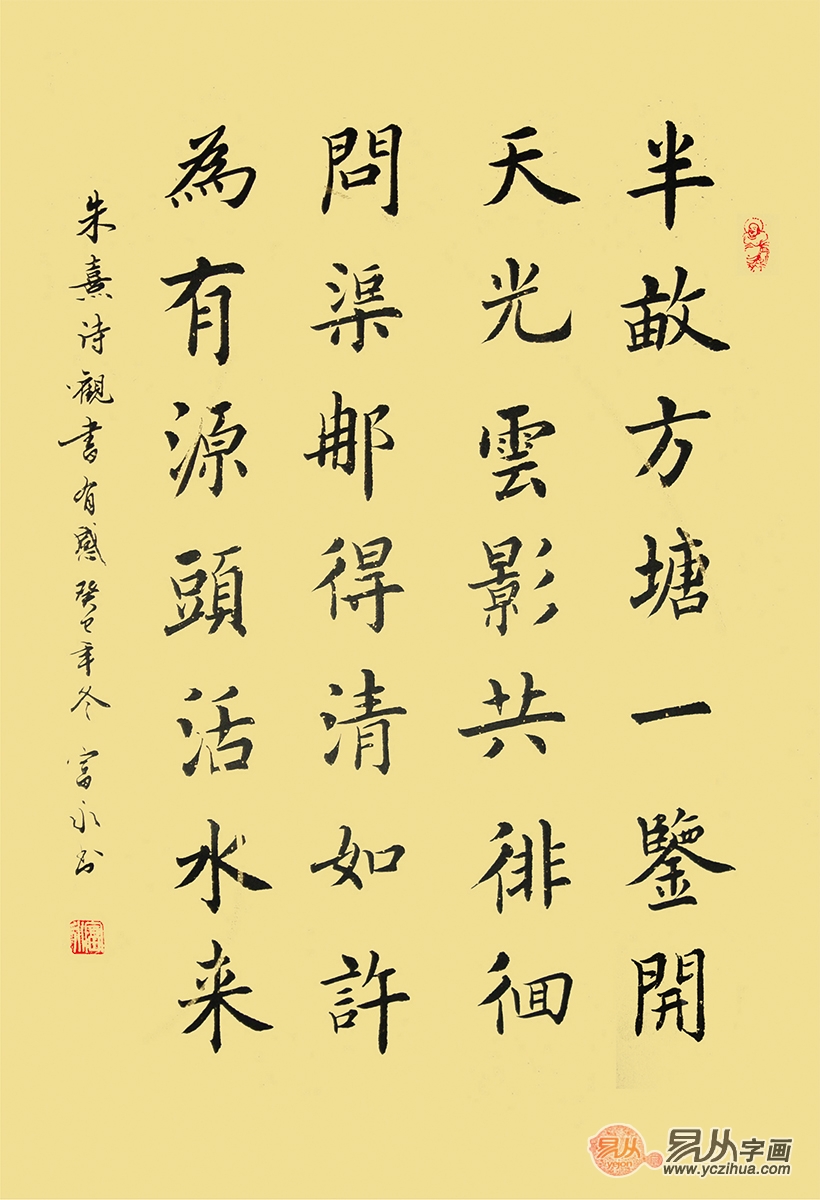 半畝方塘一鑒開
天光雲影共徘徊
問渠那得清如許
為有源頭活水来
朱熹诗觀書有感癸巳年冬 富永书
易从
yicjon
易从字画
www.yczihua.com